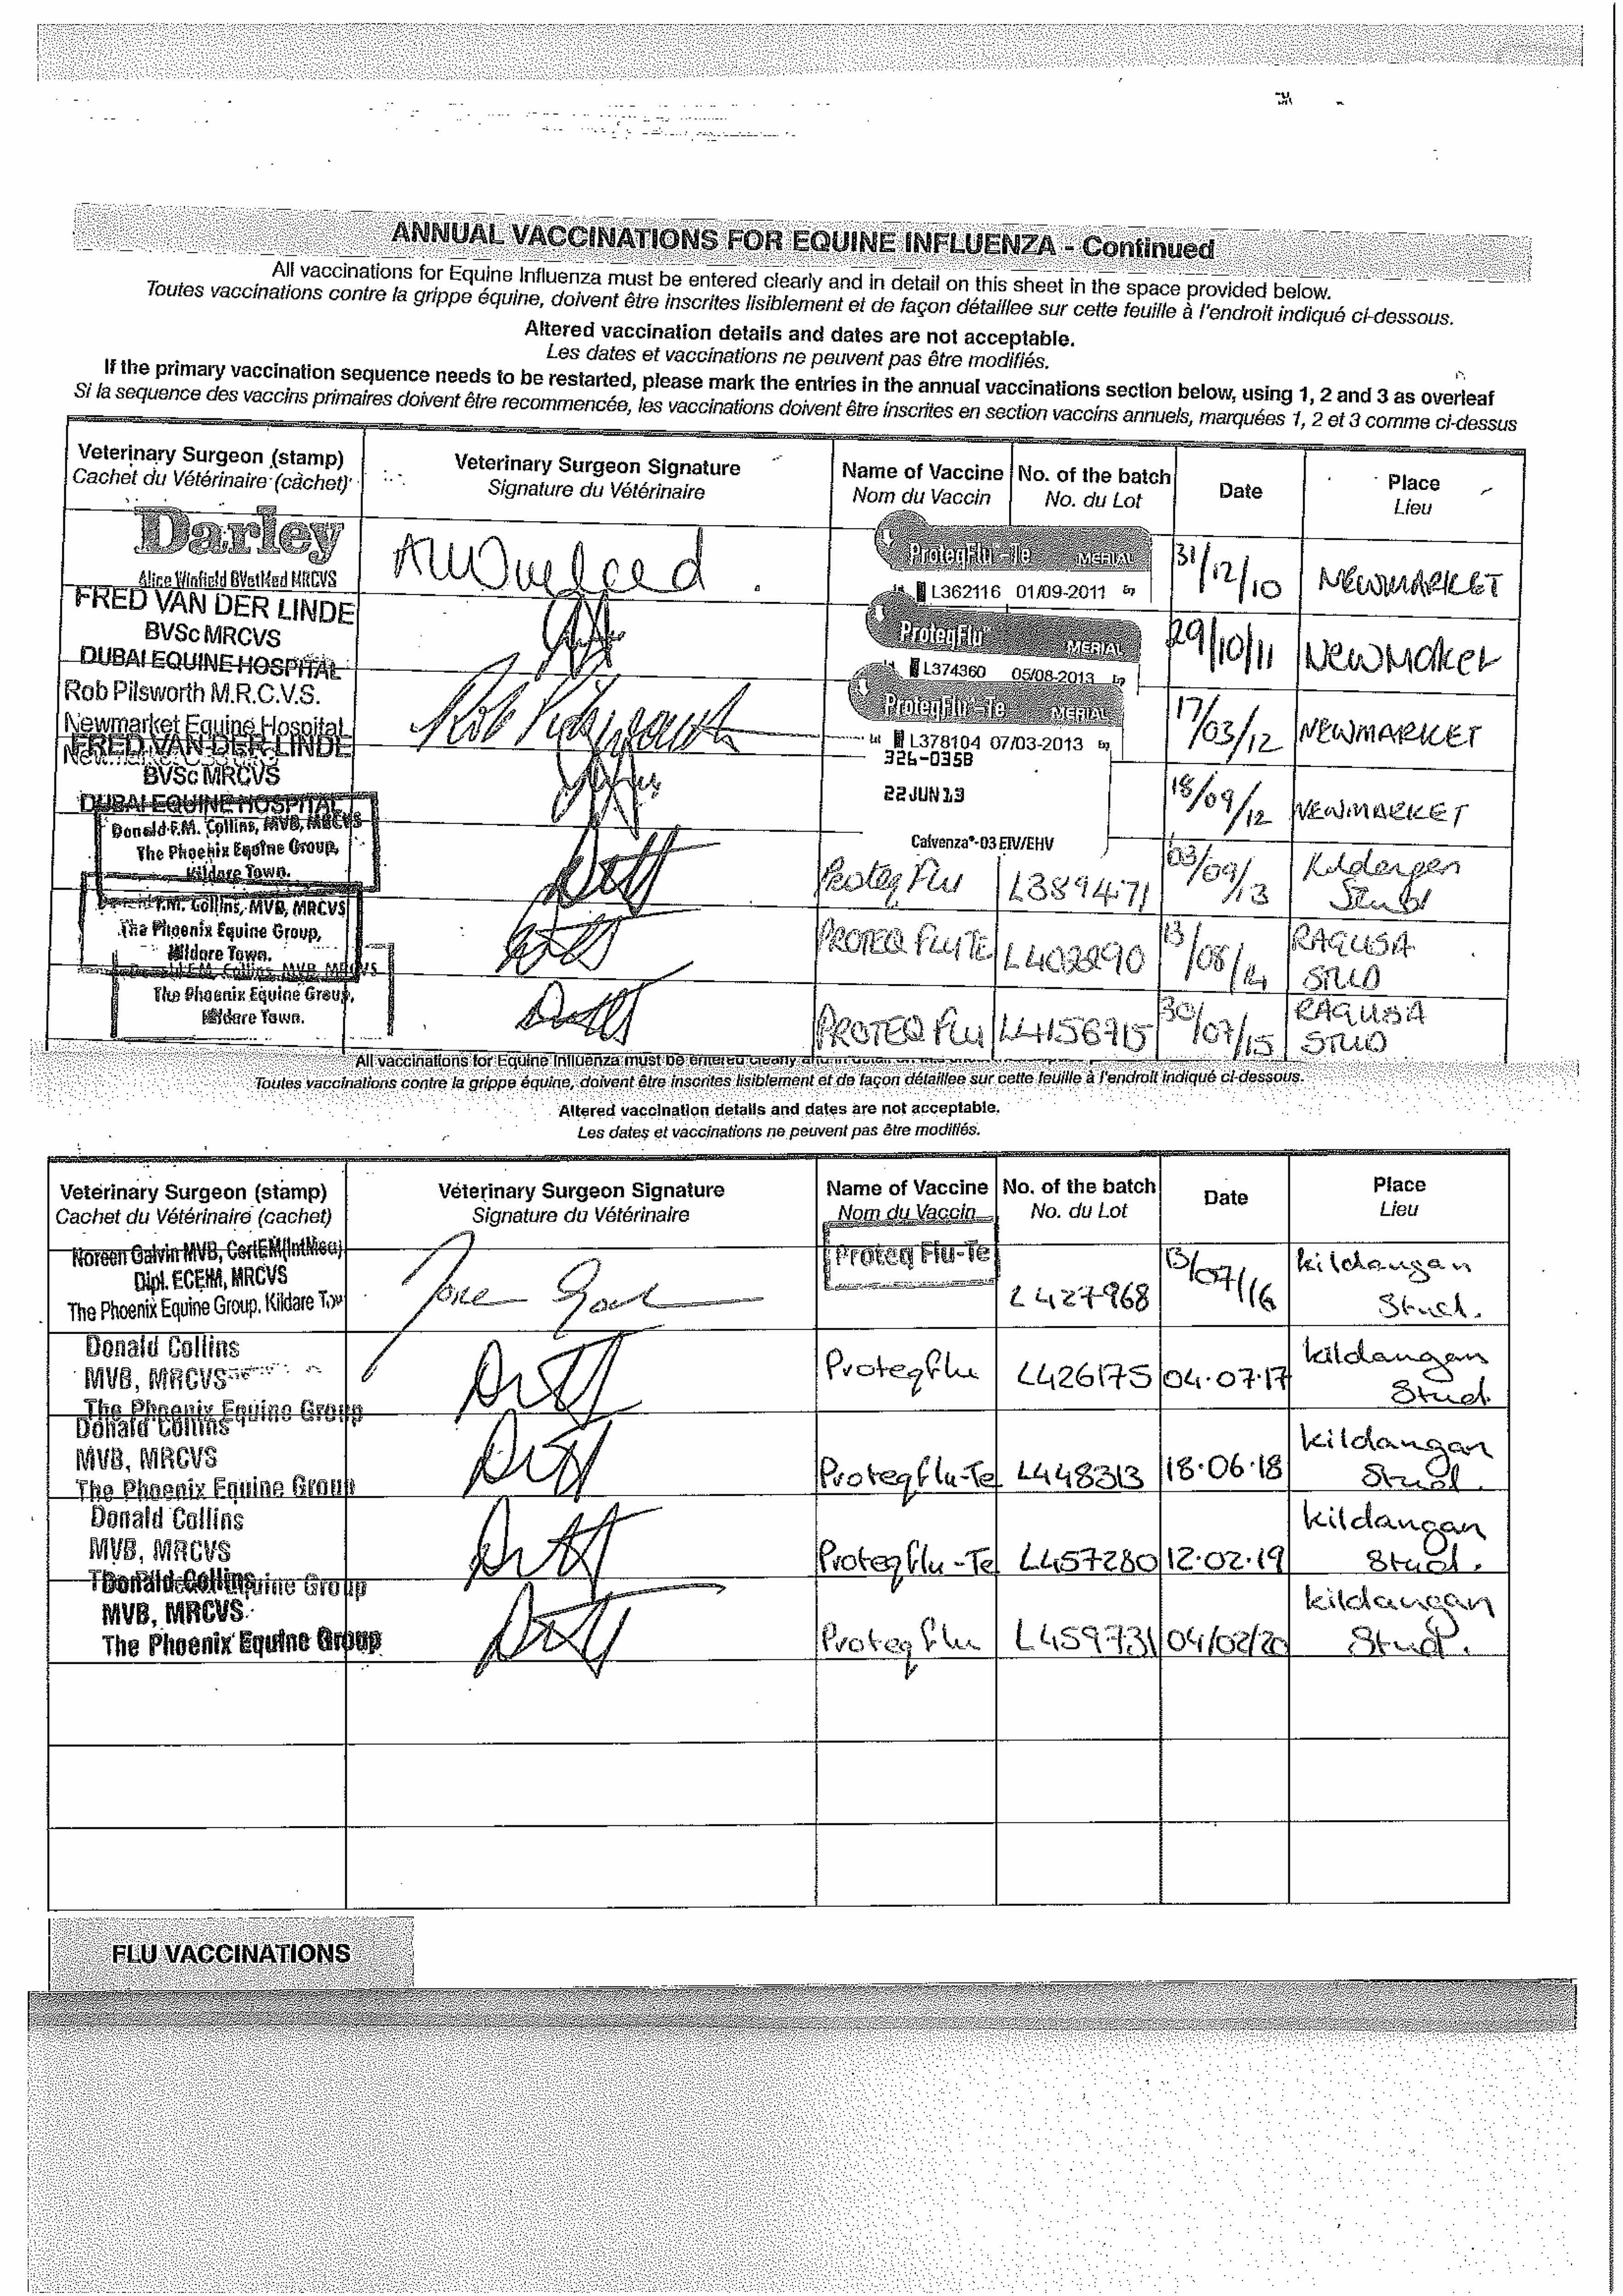 ANNUAL VACCINATIONS FOR EQUINE INFLUENZA - Continued
All vaccinations for Equine Influenza must be entered clearly and in detail on this sheet in the space provided below.
Toutes vaccinations contre la grippe équine, doivent être inscrites lisiblement et de façon détaillee sur cette feuille à l'endroit indiqué ci-dessous.
Altered vaccination details and dates are not acceptable.
Les dates et vaccinations ne peuvent pas être modifiés.
If the primary vaccination sequence needs to be restarted, please mark the entries in the annual vaccinations section below, using 1, 2 and 3 as overleaf
Si la sequence des vaccins primaires doivent être recommencée, les vaccinations doivent être inscrites en section vaccins annuels, marquées 1, 2 et 3 comme ci-dessus
Veterinary Surgeon (stamp) Veterinary Surgeon Signature Name of Vaccine No. of the batch Date Place
Cachet du Vétérinaire (cachet) Signature du Vétérinaire Nom du Vaccin No. du Lot Lieu
Darley ProteqFlu-Te MERIAL 31/12/10 NEWMARKET
Alice Winfield BVetMed MRCVS L362116 01/09-2011
FRED VAN DER LINDE ProteqFlu MERIAL 29/10/11 NEWMARKET
BVSc MRCVS
DUBAI EQUINE HOSPITAL L374360 05/08-2013
Rob Pilsworth M.R.C.V.S. Rob Pilsworth ProteqFlu-Te MERIAL 17/03/12 NEWMARKET
Newmarket Equine Hospital L378104 07/03-2013
FRED VAN DER LINDE 326-035B
BVSc MRCVS 22 JUN 13 18/09/12 NEWMARKET
DUBAI EQUINE HOSPITAL
Calvenza®-03 EIV/EHV
Donald F.M. Collins, MVB, MRCVS
The Phoenix Equine Group, Proteq Flu L389471 03/09/13 Kildangan
Kildare Town. Stud
F.M. Collins, MVB, MRCVS
The Phoenix Equine Group, PROTEQ FLU TE L402290 13/08/14 RAGUSA
Kildare Town. STUD
Donald F.M. Collins, MVB, MRCVS
The Phoenix Equine Group, PROTEQ FLU L4156715 30/07/15 RAGUSA
Kildare Town. STUD
All vaccinations for Equine Influenza must be entered clearly
Toutes vaccinations contre la grippe équine, doivent être inscrites lisiblement et de façon détaillee sur cette feuille à l'endroit indiqué ci-dessous.
Altered vaccination details and dates are not acceptable.
Les dates et vaccinations ne peuvent pas être modifiés.
Veterinary Surgeon (stamp) Veterinary Surgeon Signature Name of Vaccine No. of the batch Date Place
Cachet du Vétérinaire (cachet) Signature du Vétérinaire Nom du Vaccin No. du Lot Lieu
Noreen Galvin MVB, CertEM(IntMed) Proteq Flu-Te 13/07/16 kildangan
Dipl. ECEIM, MRCVS
The Phoenix Equine Group, Kildare Tow L427968 Stud.
Donald Collins kildangan
MVB, MRCVS Proteqflu L426175 04.07.17 Stud
The Phoenix Equine Group
Donald Collins kildangan
MVB, MRCVS Proteqflu-Te L448313 18.06.18 Stud.
The Phoenix Equine Group
Donald Collins kildangan
MVB, MRCVS Proteqflu-Te L457280 12.02.19 Stud.
Equine Group
Donald Collins kildangan
MVB, MRCVS
The Phoenix Equine Group Proteqflu L459731 04/02/20 Stud.
FLU VACCINATIONS